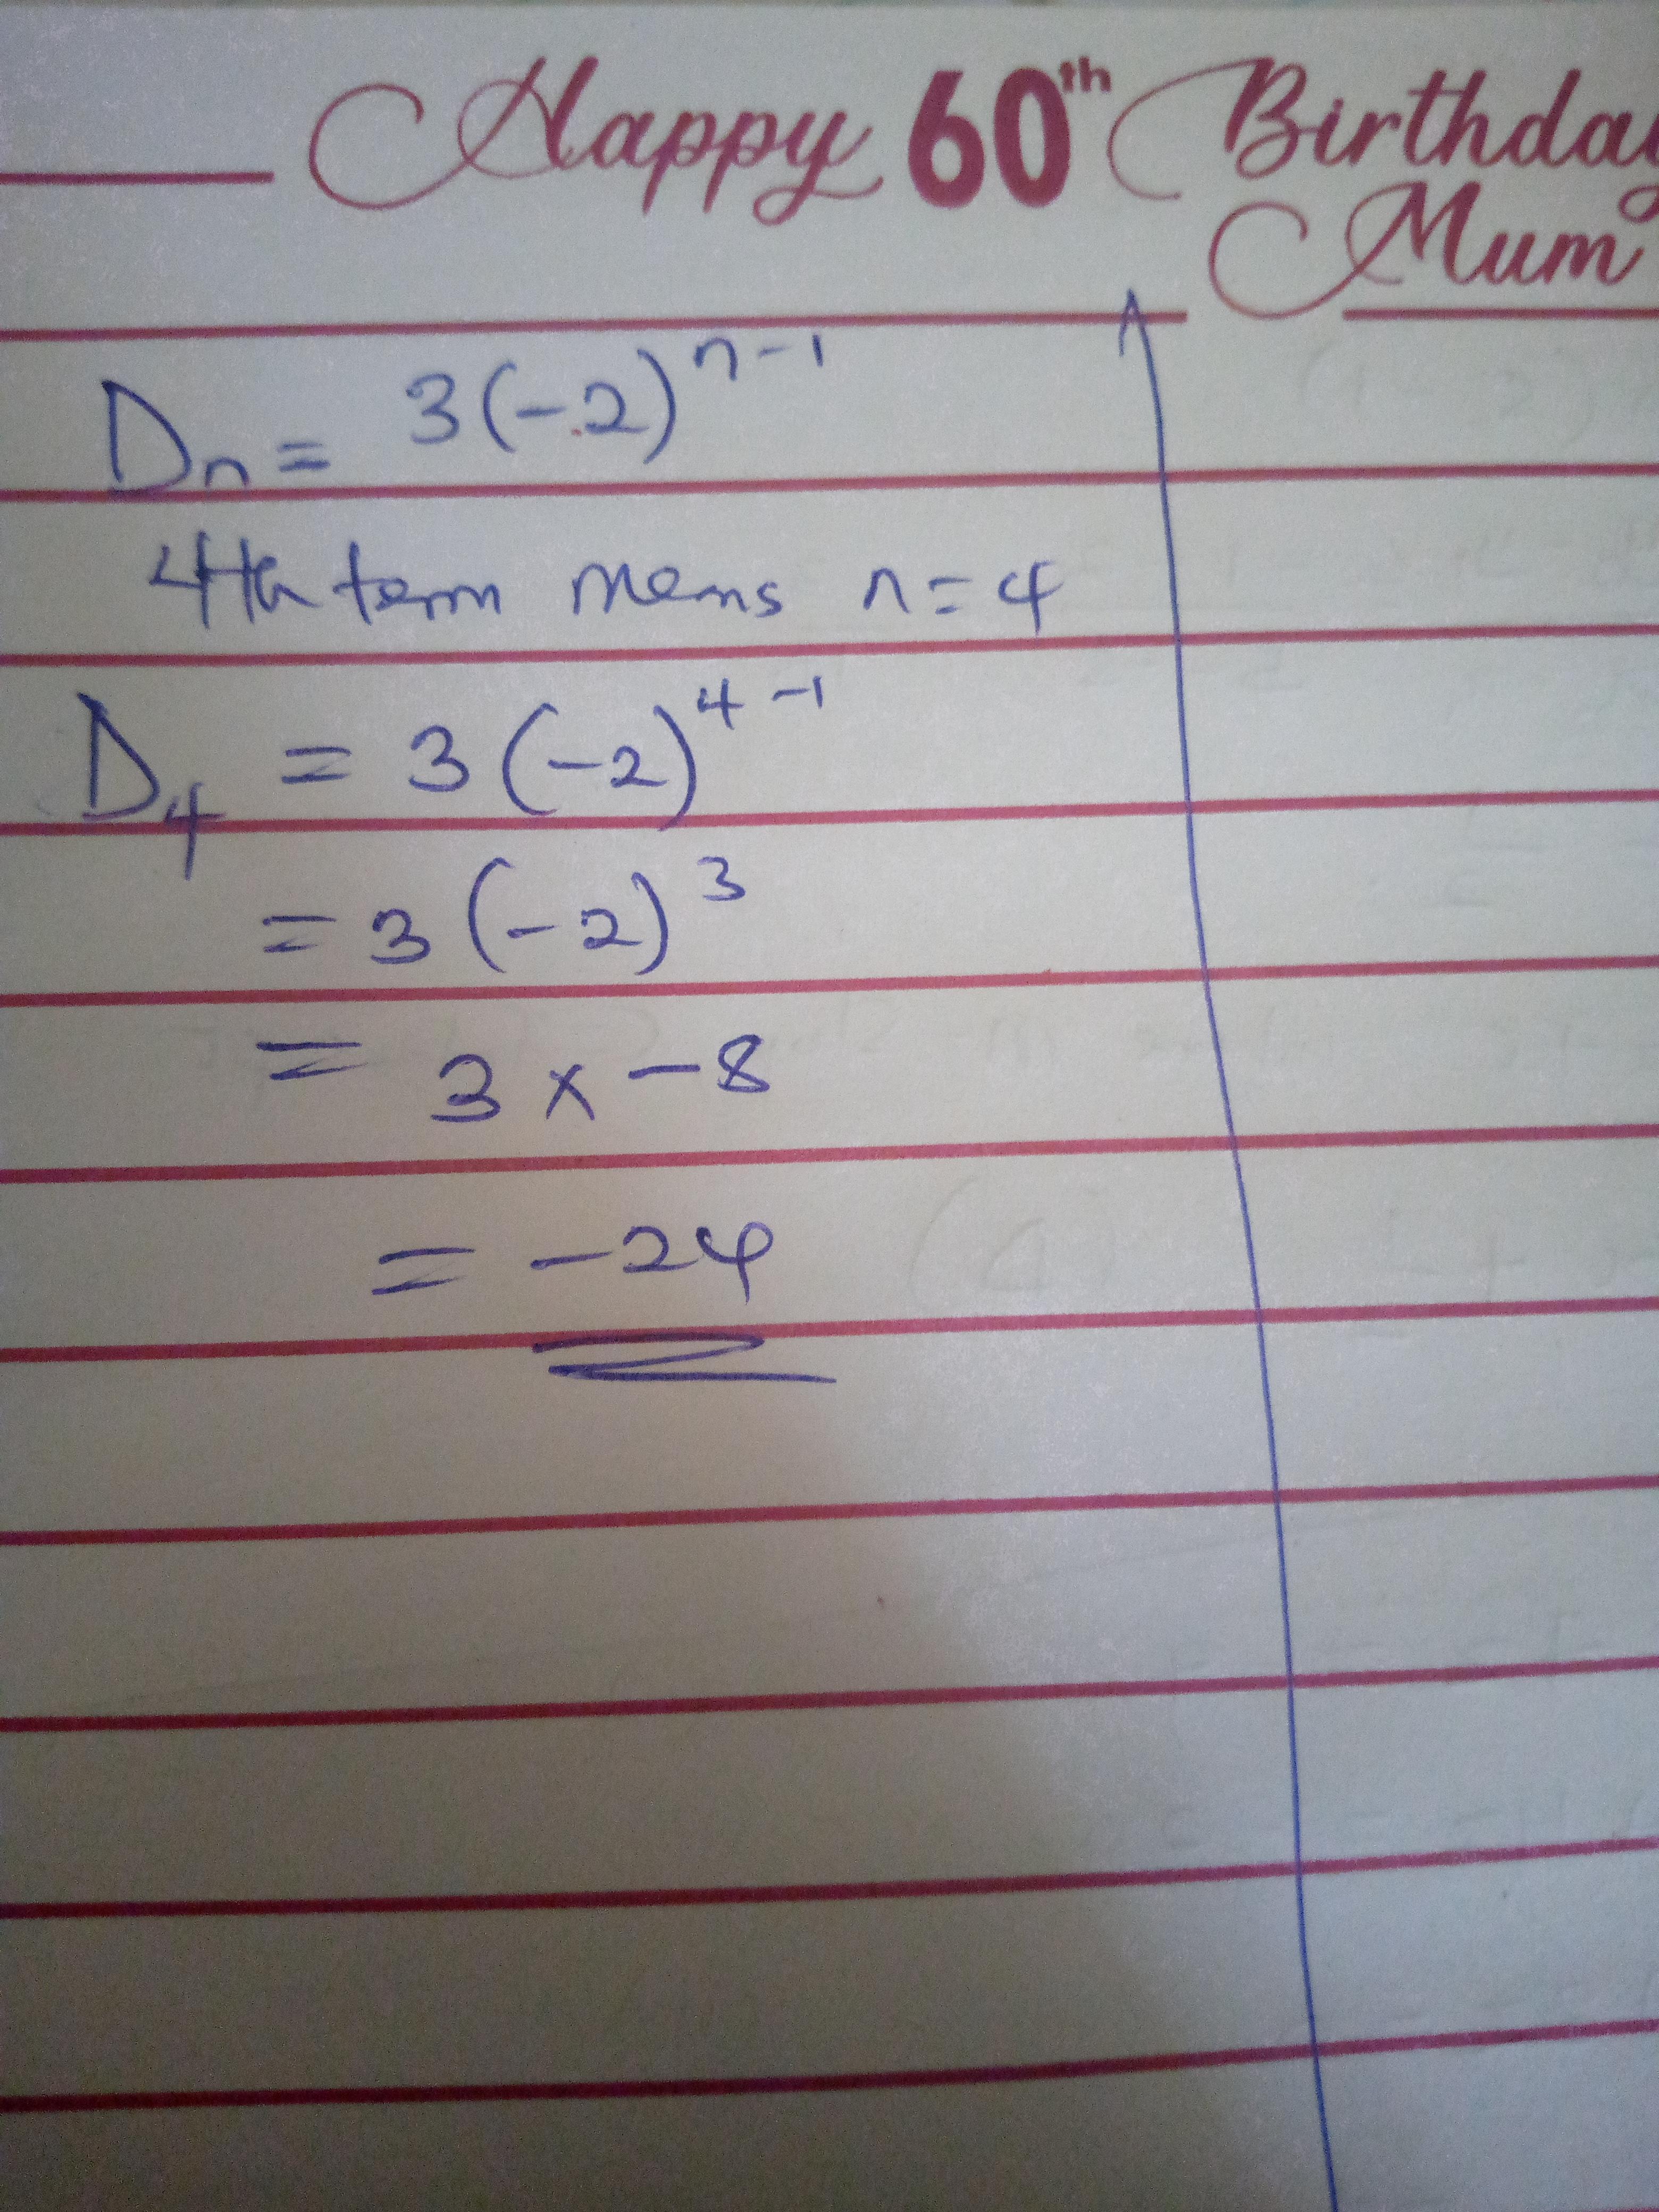 Happy 60th Birthday
Mum
Dn = 3(-2)^n-1
4th term means n=4
D4 = 3(-2)^4-1
= 3(-2)^3
= 3 x -8
= -24